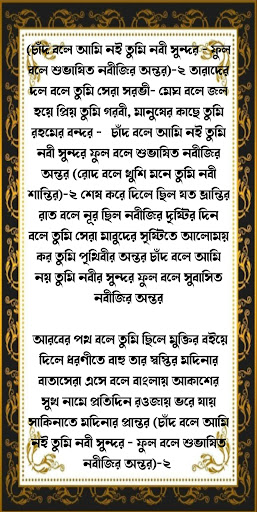 (চাঁদ বলে আমি নই তুমি নবী সুন্দর - ফুল
বলে শুভাষিত নবীজির অন্তর)-২ তারাদের
দল বলে তুমি সেরা সরভী- মেঘ বলে জল
হয়ে প্রিয় তুমি গরবী, মানুষের কাছে তুমি
রহমের বন্দর - চাঁদ বলে আমি নই তুমি
নবী সুন্দর ফুল বলে শুভাষিত নবীজির
অন্তর (রোদ বলে খুশি মনে তুমি নবী
শান্তির)-২ শেষ করে দিলে ছিল যত ভ্রান্তির
রাত বলে নূর ছিল নবীজির দৃষ্টির দিন
বলে তুমি সেরা মাবুদের সৃষ্টিতে আলোময়
কর তুমি পৃথিবীর অন্তর চাঁদ বলে আমি
নয় তুমি নবীর সুন্দর ফুল বলে সুবাসিত
নবীজির অন্তর
আরবের পথ বলে তুমি ছিলে মুক্তির বইয়ে
দিলে ধরণীতে বাহু তার স্বস্তির মদিনার
বাতাসেরা এসে বলে বাংলায় আকাশের
সুখ নামে প্রতিদিন রওজায় ভরে যায়
সাকিনাতে মদিনার প্রান্তর (চাঁদ বলে আমি
নই তুমি নবী সুন্দর - ফুল বলে শুভাষিত
নবীজির অন্তর)-২